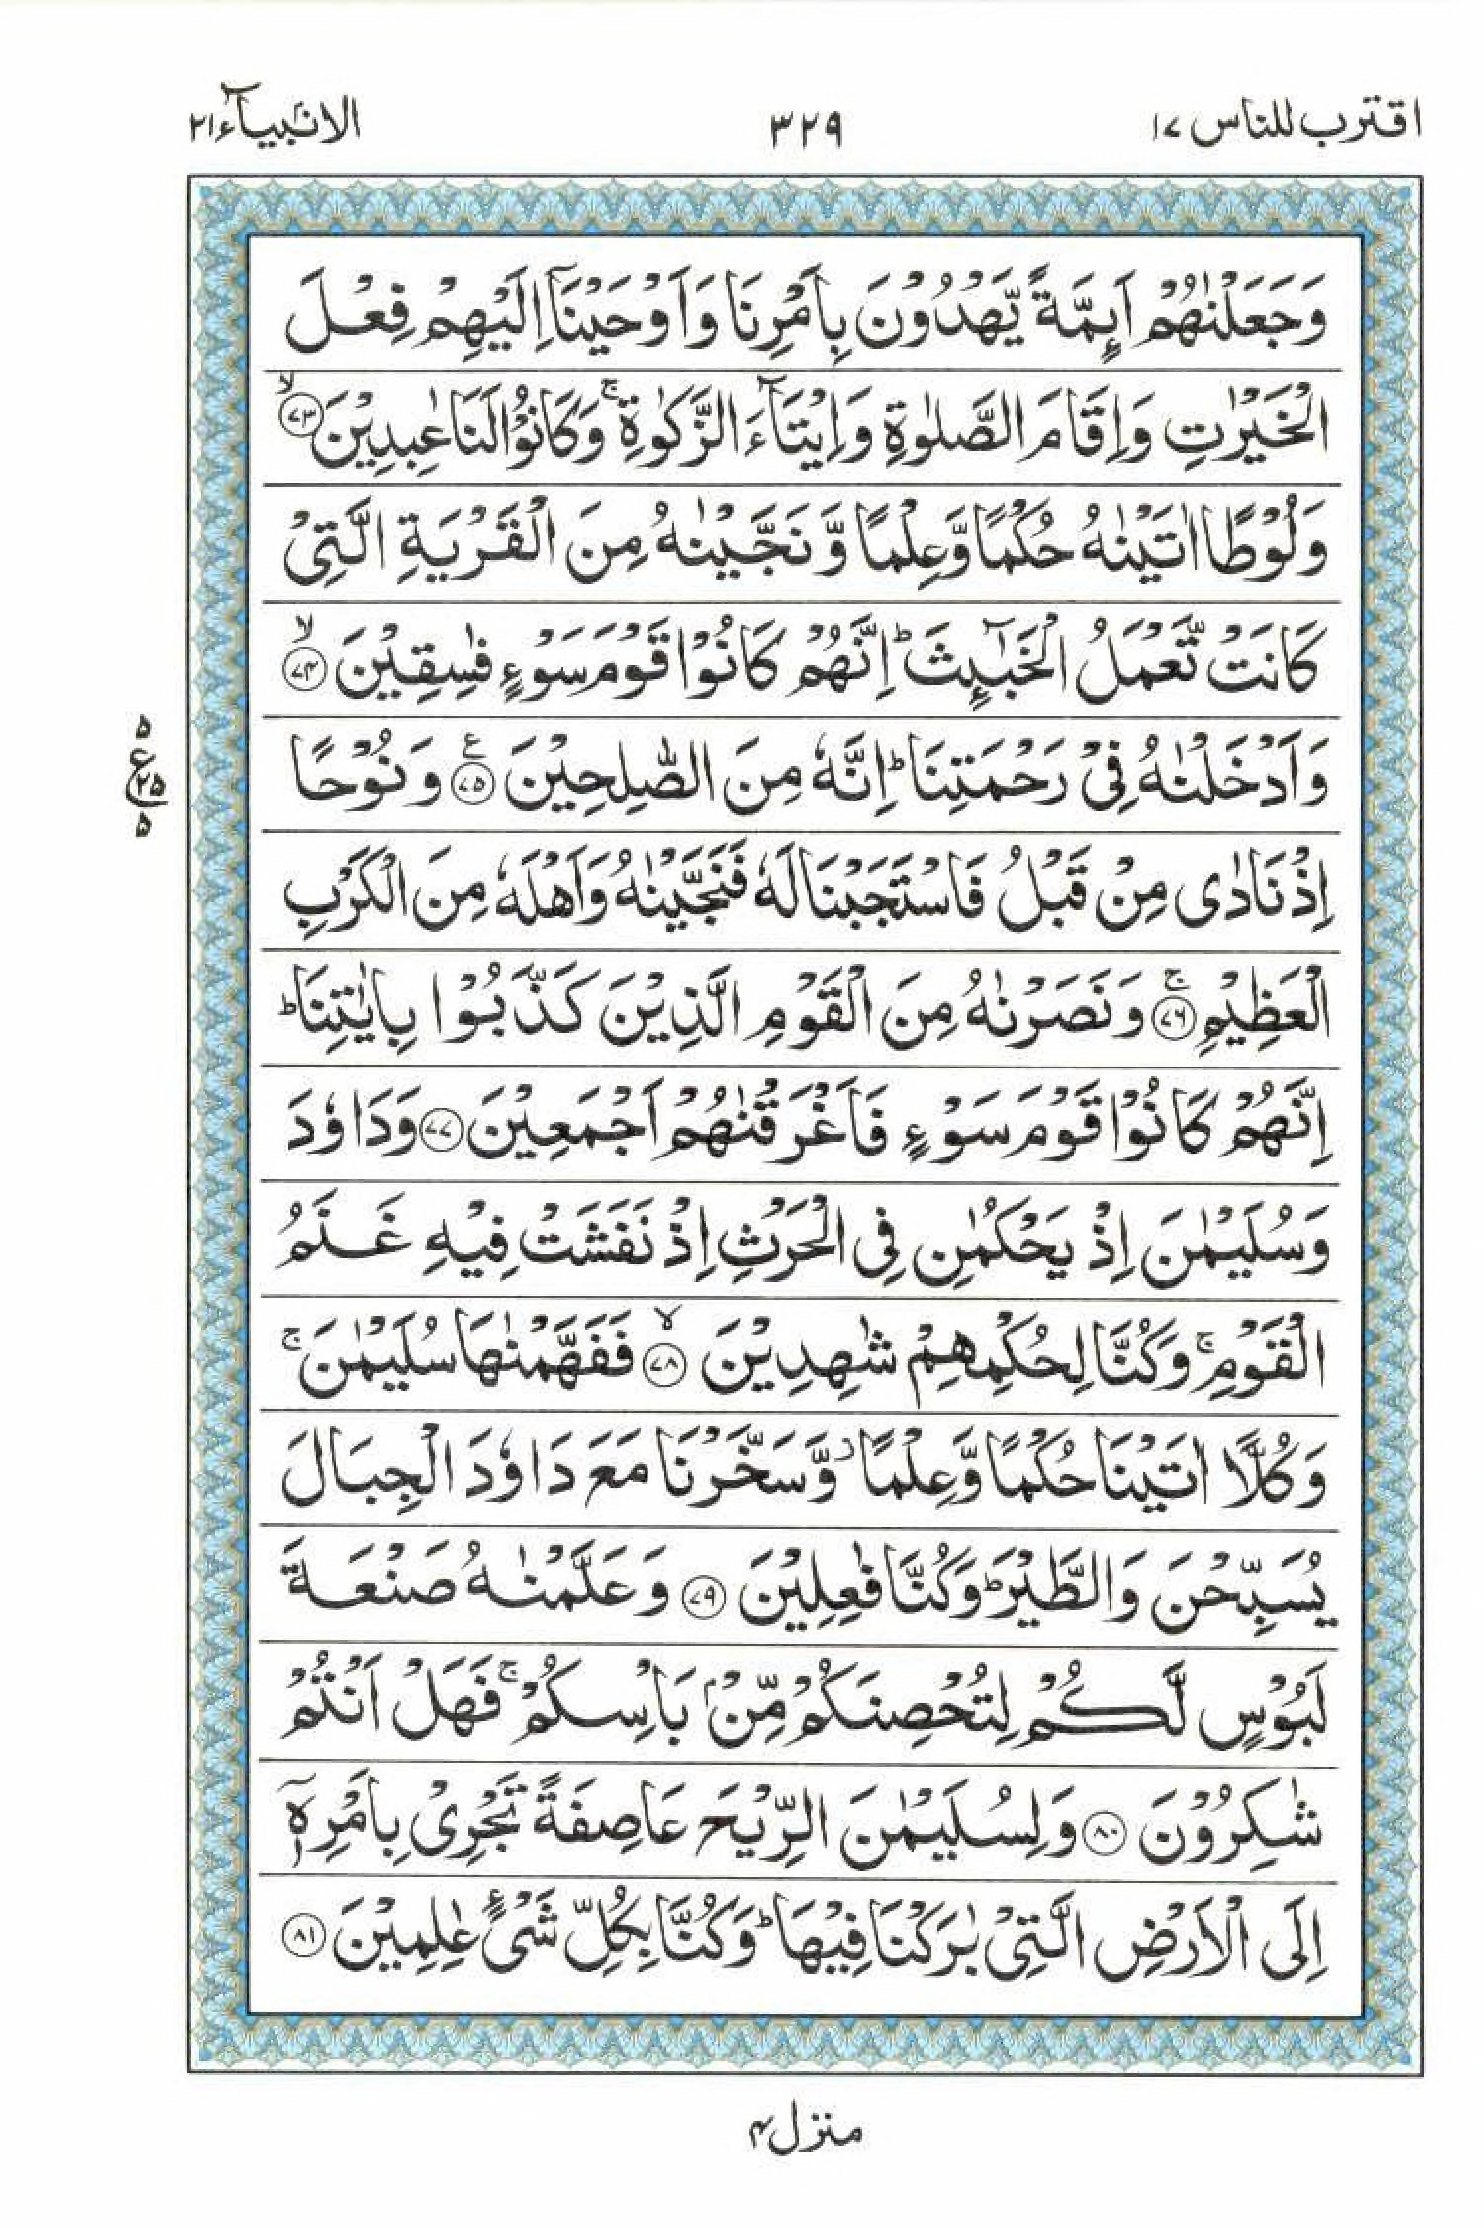 اقترب للناس ۱۷ ۳۲۹ الانۢبیآء ۲۱
وَجَعَلْنٰهُمْ اَئِمَّةً یَّهْدُوْنَ بِاَمْرِنَا وَاَوْحَیْنَاۤ اِلَیْهِمْ فِعْلَ
الْخَیْرٰتِ وَاِقَامَ الصَّلٰوةِ وَاِیْتَآءَ الزَّكٰوةِ ۚ وَكَانُوْا لَنَا عٰبِدِیْنَ ۙ۝۷۳
وَلُوْطًا اٰتَیْنٰهُ حُكْمًا وَّعِلْمًا وَّنَجَّیْنٰهُ مِنَ الْقَرْیَةِ الَّتِیْ
كَانَتْ تَّعْمَلُ الْخَبٰٓئِثَ ؕ اِنَّهُمْ كَانُوْا قَوْمَ سَوْءٍ فٰسِقِیْنَ ۙ۝۷۴
وَاَدْخَلْنٰهُ فِیْ رَحْمَتِنَا ؕ اِنَّهٗ مِنَ الصّٰلِحِیْنَ ۝۷۵ ع وَنُوْحًا
۵ ع ۲۵ ۵
اِذْ نَادٰی مِنْ قَبْلُ فَاسْتَجَبْنَا لَهٗ فَنَجَّیْنٰهُ وَاَهْلَهٗ مِنَ الْكَرْبِ
الْعَظِیْمِ ۚ۝۷۶ وَنَصَرْنٰهُ مِنَ الْقَوْمِ الَّذِیْنَ كَذَّبُوْا بِاٰیٰتِنَا ؕ
اِنَّهُمْ كَانُوْا قَوْمَ سَوْءٍ فَاَغْرَقْنٰهُمْ اَجْمَعِیْنَ ۝۷۷ وَدَاوٗدَ
وَسُلَیْمٰنَ اِذْ یَحْكُمٰنِ فِی الْحَرْثِ اِذْ نَفَشَتْ فِیْهِ غَنَمُ
الْقَوْمِ ۚ وَكُنَّا لِحُكْمِهِمْ شٰهِدِیْنَ ۙ۝۷۸ فَفَهَّمْنٰهَا سُلَیْمٰنَ ۚ
وَكُلًّا اٰتَیْنَا حُكْمًا وَّعِلْمًا ؗ وَّسَخَّرْنَا مَعَ دَاوٗدَ الْجِبَالَ
یُسَبِّحْنَ وَالطَّیْرَ ؕ وَكُنَّا فٰعِلِیْنَ ۝۷۹ وَعَلَّمْنٰهُ صَنْعَةَ
لَبُوْسٍ لَّكُمْ لِتُحْصِنَكُمْ مِّنْۢ بَاْسِكُمْ ۚ فَهَلْ اَنْتُمْ
شٰكِرُوْنَ ۝۸۰ وَلِسُلَیْمٰنَ الرِّیْحَ عَاصِفَةً تَجْرِیْ بِاَمْرِهٖۤ
اِلَی الْاَرْضِ الَّتِیْ بٰرَكْنَا فِیْهَا ؕ وَكُنَّا بِكُلِّ شَیْءٍ عٰلِمِیْنَ ۝۸۱
منزل ۴